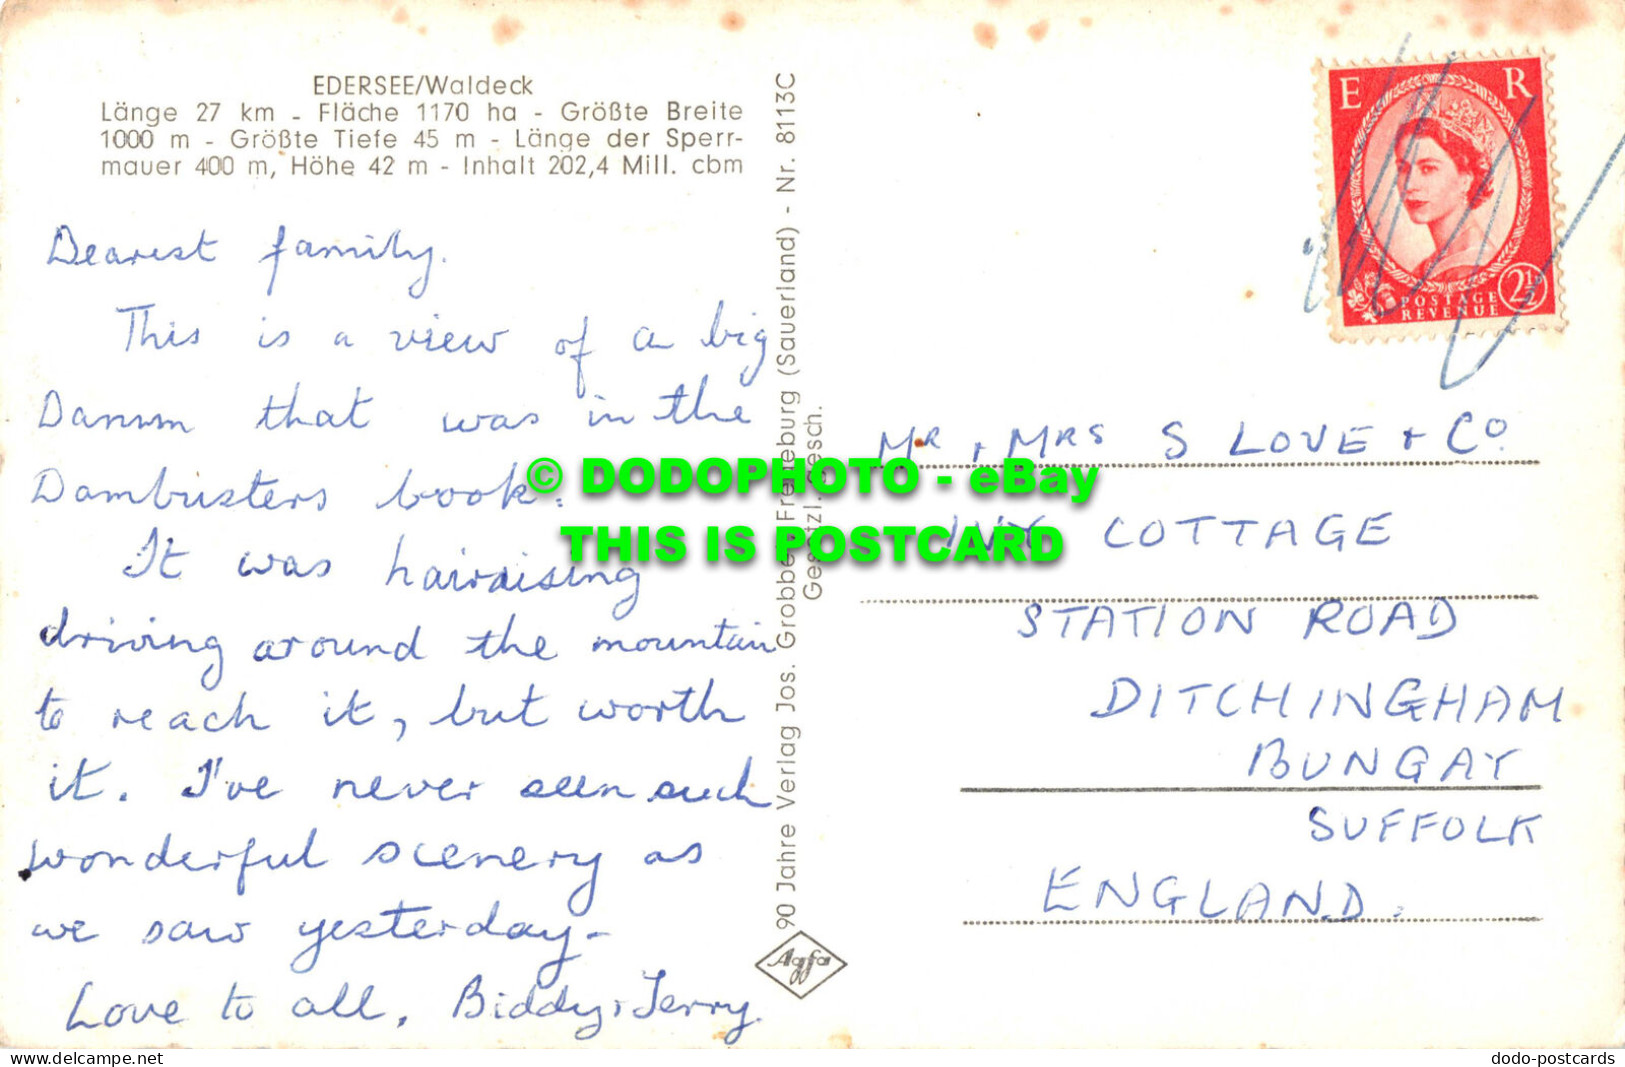 EDERSEE/Waldeck
Länge 27 km - Fläche 1170 ha - Größte Breite
1000 m - Größte Tiefe 45 m - Länge der Sperr-
mauer 400 m, Höhe 42 m - Inhalt 202,4 Mill. cbm
Dearest family.
This is a view of a big
Damm that was in the
Dambusters book.
It was hairaising
driving around the mountain
to reach it, but worth
it. I've never seen such
wonderful scenery as
we saw yesterday-
Love to all, Biddy + Terry.
90 Jahre Verlag Jos. Grobbe, Fredeburg (Sauerland) - Nr. 8113C
Gesetzl. Gesch.
Agfa
E R
POSTAGE
REVENUE
2½D
MR + MRS S LOVE + Co
IVY COTTAGE
STATION ROAD
DITCHINGHAM
BUNGAY
SUFFOLK
ENGLAND.
© DODOPHOTO - eBay
THIS IS POSTCARD
www.delcampe.net
dodo-postcards